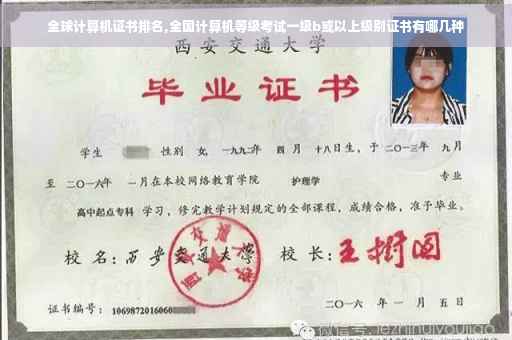 全球计算机证书排名,全国计算机等级考试一级b或以上级别证书有哪几种
西安交通大学
毕业证书
学生 性别 女, 一九九二年 四月 十八日生, 于 二〇一三年 九月
至 二〇一六年 一月在本校网络教育学院 护理学 专业
高中起点专科 学习, 修完教学计划规定的全部课程, 成绩合格, 准予毕业。
校 名: 西安交通大学 校 长: 王树国
证书编号: 1069872016060
二〇一六 年 一 月 五 日
微信号: jiezhihuiyoujiao